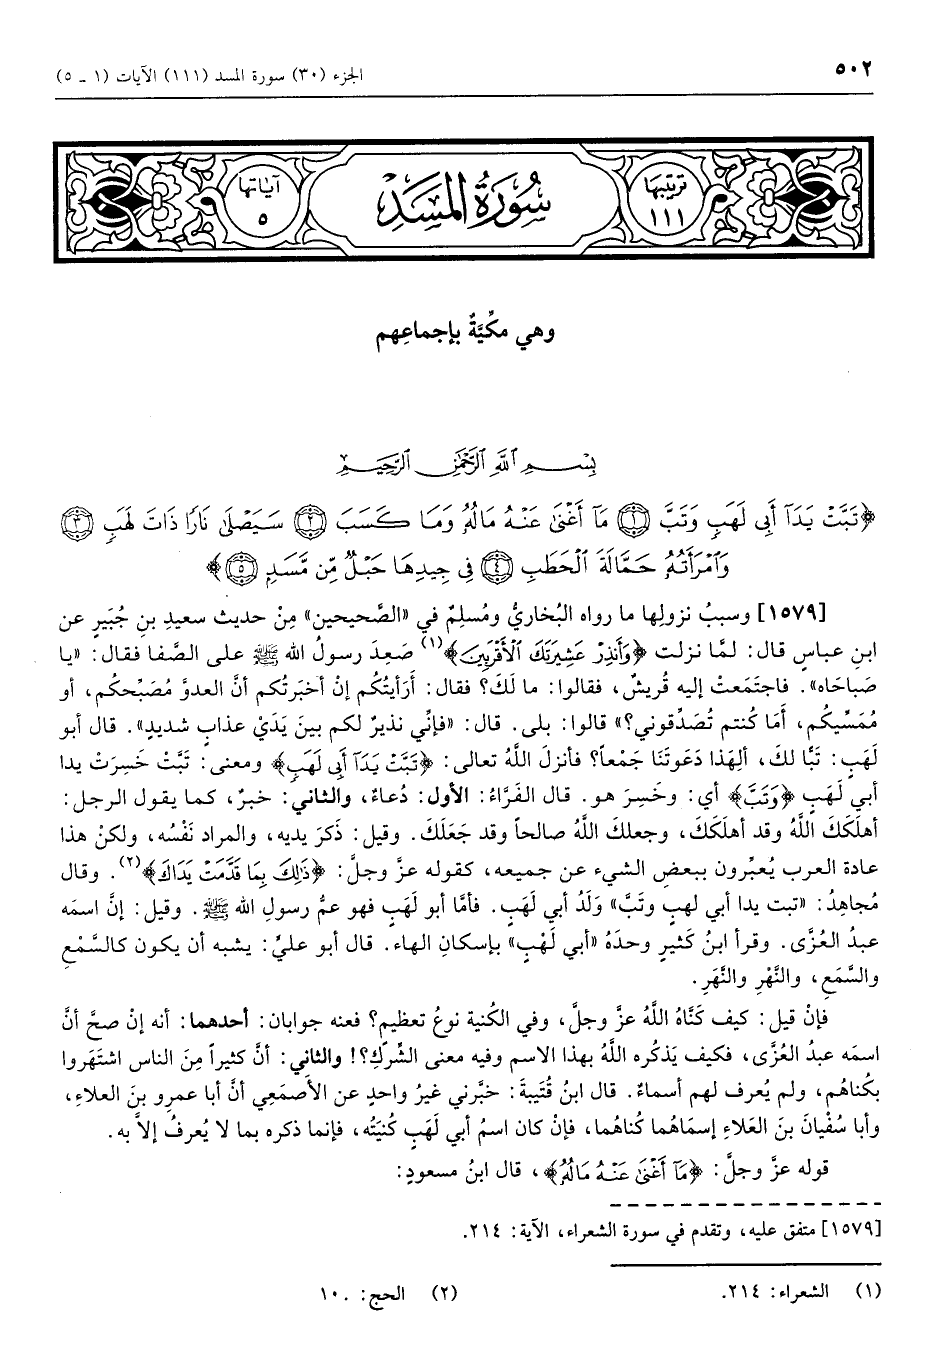 ٥٠٢
الجزء (٣٠) سورة المسد (١١١) الآيات (١ ـ ٥)
ترتيبها ١١١
سُورَةُ المَسَدِ
آياتها ٥
وهي مكِّيَّةٌ بإجماعِهم
بِسْمِ اللَّهِ الرَّحْمَٰنِ الرَّحِيمِ
﴿تَبَّتْ يَدَآ أَبِي لَهَبٍ وَتَبَّ ۝١ مَآ أَغْنَىٰ عَنْهُ مَالُهُۥ وَمَا كَسَبَ ۝٢ سَيَصْلَىٰ نَارًا ذَاتَ لَهَبٍ ۝٣
وَٱمْرَأَتُهُۥ حَمَّالَةَ ٱلْحَطَبِ ۝٤ فِي جِيدِهَا حَبْلٌ مِّن مَّسَدٍ ۝٥﴾
[١٥٧٩] وسببُ نزولِها ما رواه البُخاريُّ ومُسلِمٌ في «الصَّحيحين» مِنْ حديث سعيدِ بنِ جُبَيرٍ عن
ابنِ عباسٍ قال: لمَّا نزلت ﴿وَأَنذِرْ عَشِيرَتَكَ ٱلْأَقْرَبِينَ﴾(١) صَعِدَ رسولُ الله ﷺ على الصَّفا فقال: «يا
صَباحَاه». فاجتَمَعتْ إليه قُريشٌ، فقالوا: ما لَكَ؟ فقال: أَرَأَيتُكم إنْ أخبَرتُكم أنَّ العدوَّ مُصَبِّحكُم، أو
مُمَسِّيكُم، أمَا كُنتم تُصَدِّقوني؟» قالوا: بلى. قال: «فإنِّي نذيرٌ لكم بينَ يَدَيْ عذابٍ شديدٍ». قال أبو
لَهَبٍ: تَبًّا لكَ، ألِهَذا دَعَوتَنا جَمْعاً؟ فأنزلَ اللَّهُ تعالى: ﴿تَبَّتْ يَدَآ أَبِي لَهَبٍ﴾ ومعنى: تَبَّتْ خَسِرَتْ يدا
أبي لَهَبٍ ﴿وَتَبَّ﴾ أي: وخَسِرَ هو. قال الفَرَّاءُ: الأول: دُعاءٌ، والثاني: خبرٌ، كما يقول الرجل:
أهلَكَكَ اللَّهُ وقد أهلَكَكَ، وجعلكَ اللَّهُ صالحاً وقد جَعَلَكَ. وقيل: ذَكَرَ يديه، والمراد نَفْسُه، ولكنْ هذا
عادة العرب يُعبِّرون ببعضِ الشيء عن جميعه، كقوله عزَّ وجلَّ: ﴿ذَٰلِكَ بِمَا قَدَّمَتْ يَدَاكَ﴾(٢). وقال
مُجاهِدٌ: «تبت يدا أبي لهبٍ وتبَّ» وَلَدُ أبي لَهَبٍ. فأمَّا أبو لَهَبٍ فهو عمُّ رسولِ الله ﷺ. وقيل: إنَّ اسمَه
عبدُ العُزَّى. وقرأ ابنُ كَثيرٍ وحدَهُ «أبي لَهْبٍ» بإسكانِ الهاء. قال أبو عليٍّ: يشبه أن يكون كالسَّمْعِ
والسَّمَعِ، والنَّهْرِ والنَّهَرِ.
فإنْ قيل: كيف كَنَّاهُ اللَّهُ عزَّ وجلَّ، وفي الكُنية نوعُ تعظيمٍ؟ فعنه جوابان: أحدهما: أنه إنْ صحَّ أنَّ
اسمَه عبدُ العُزَّى، فكيف يَذكُره اللَّهُ بهذا الاسم وفيه معنى الشِّركِ؟! والثاني: أنَّ كثيراً مِنَ الناس اشتَهَروا
بكُناهُم، ولم يُعرف لهم أسماءٌ. قال ابنُ قُتَيبةَ: خبَّرني غيرُ واحدٍ عن الأصمَعي أنَّ أبا عمرِو بنَ العلاءِ،
وأبا سُفْيانَ بنَ العَلاءِ إسمَاهُما كُناهُما، فإنْ كان اسمُ أبي لَهَبٍ كُنيَتُه، فإنما ذكره بما لا يُعرفُ إلاَّ به.
قوله عزَّ وجلَّ: ﴿مَآ أَغْنَىٰ عَنْهُ مَالُهُ﴾، قال ابنُ مسعودٍ:
[١٥٧٩] متفق عليه، وتقدم في سورة الشعراء، الآية: ٢١٤.
(١) الشعراء: ٢١٤.
(٢) الحج: ١٠.